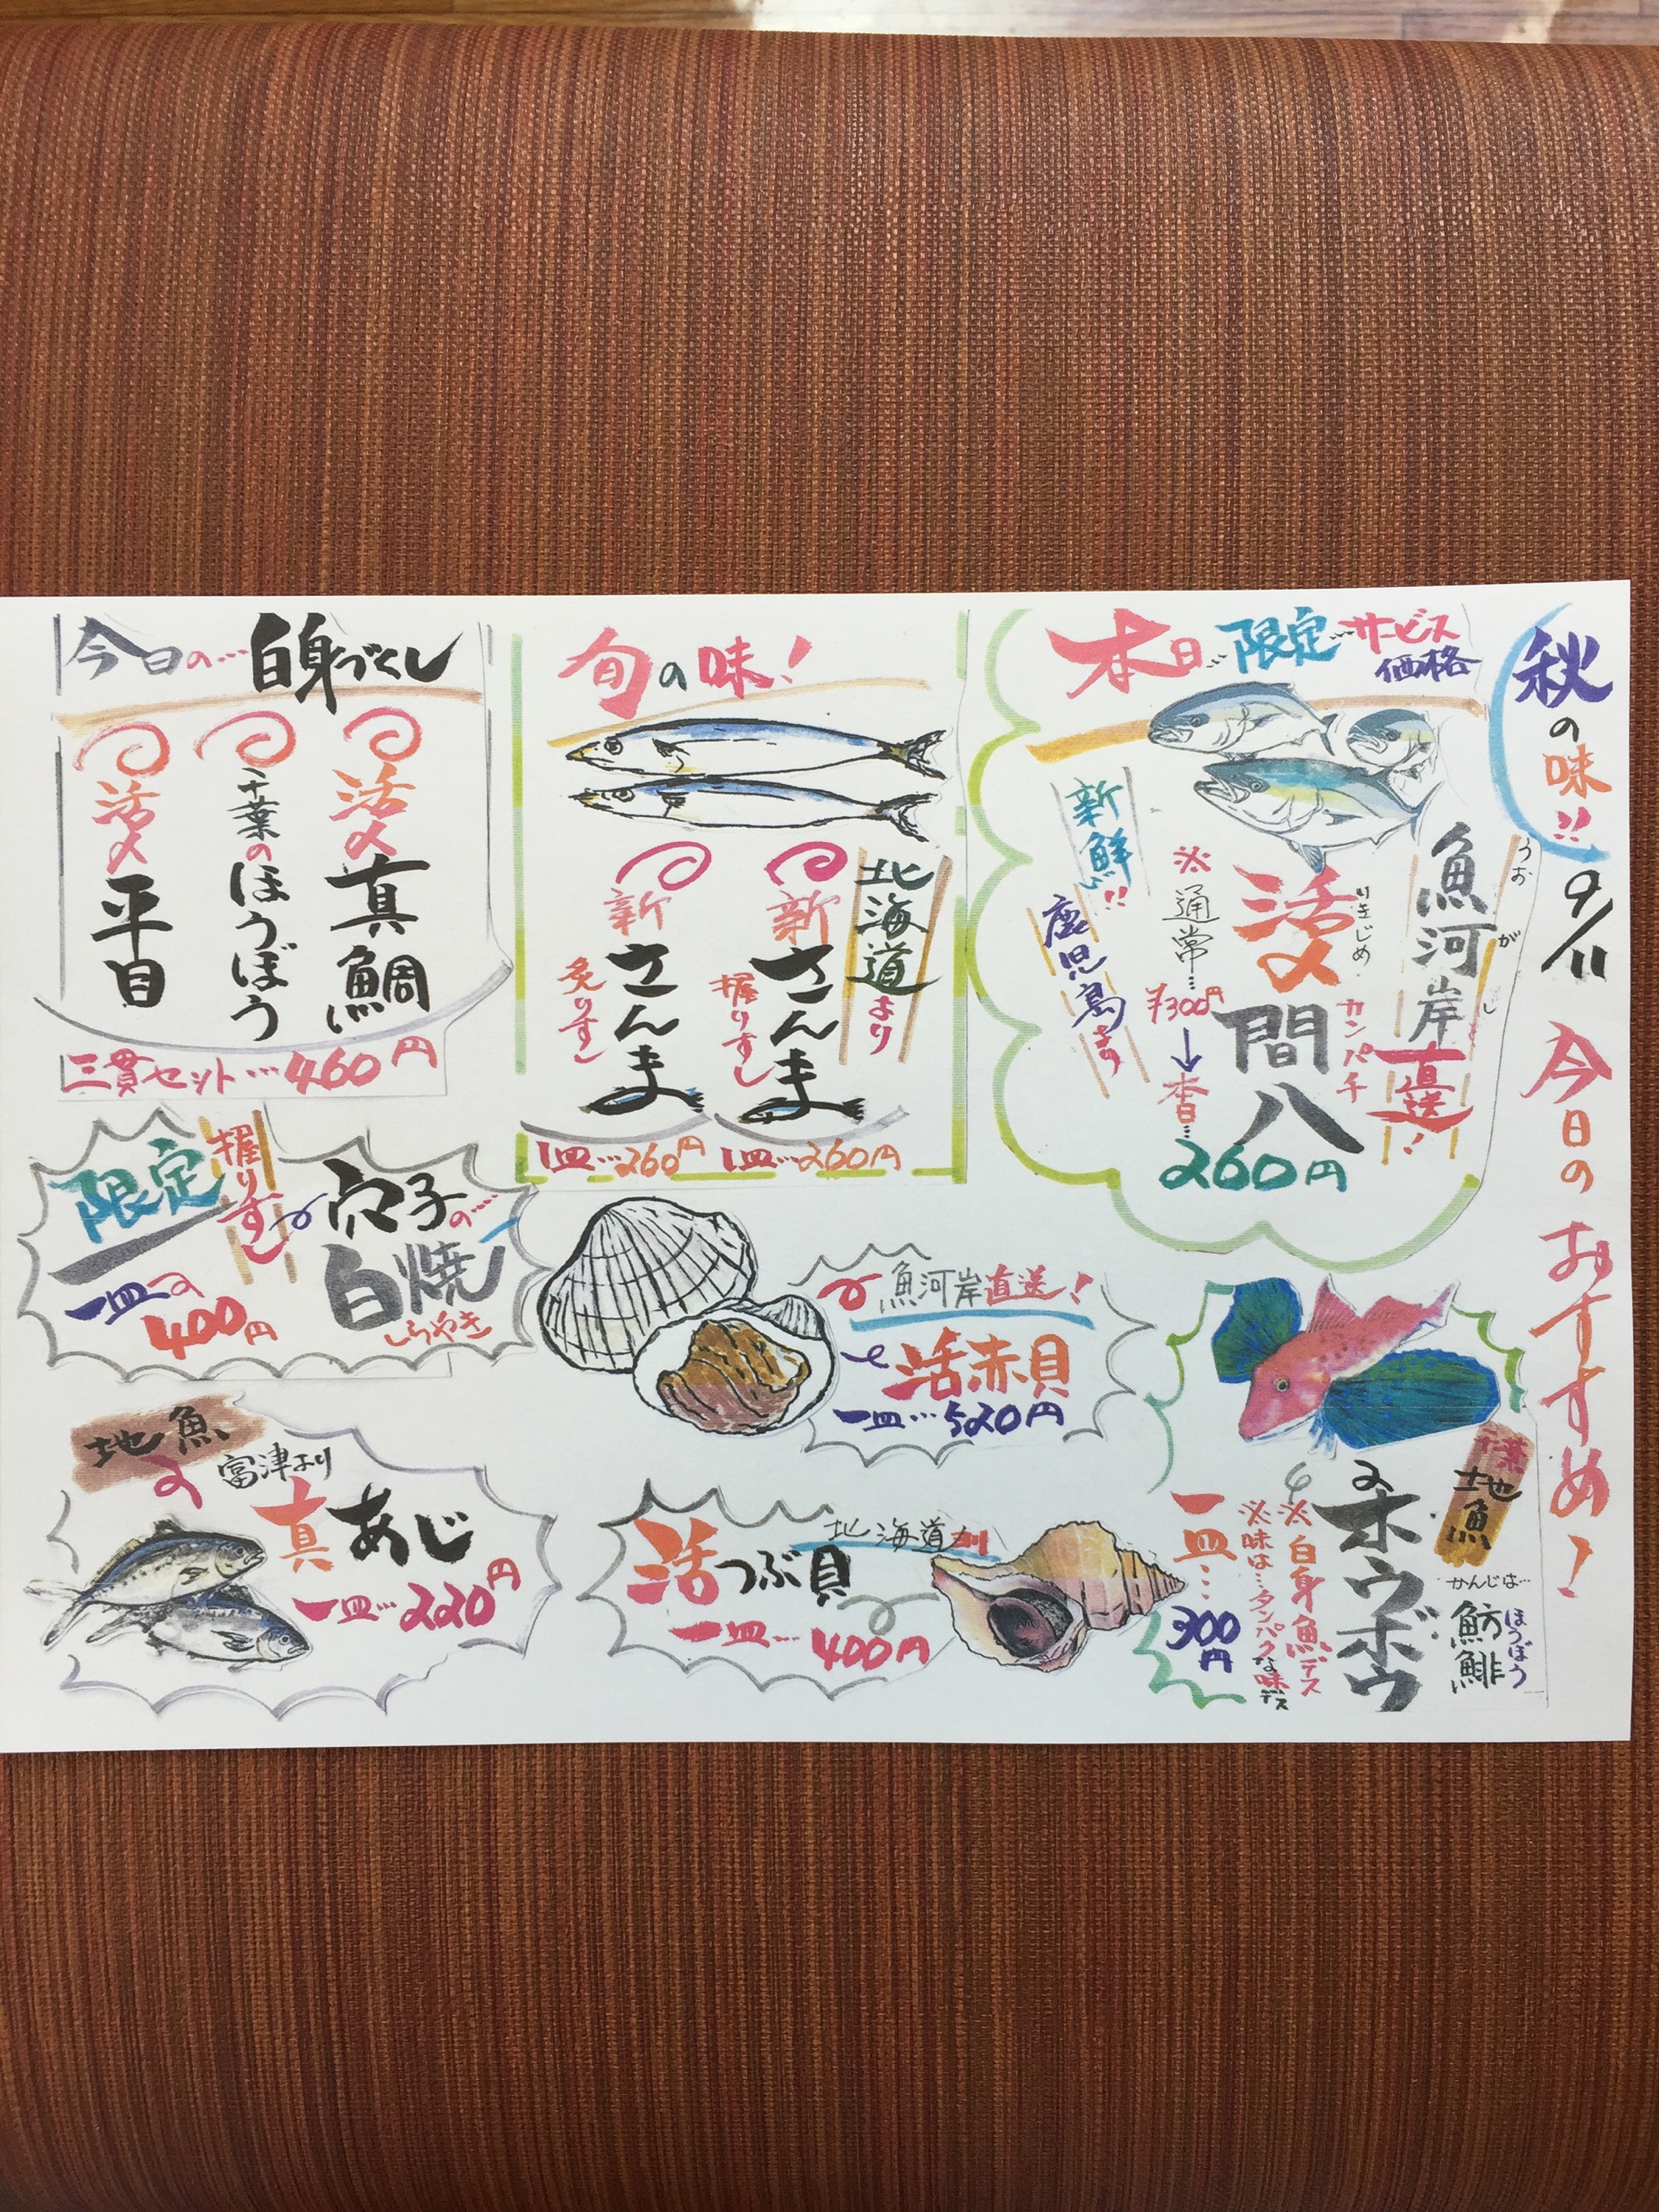 秋の味!!
9/11 今日のおすすめ!
本日…限定…サービス
価格
魚河岸直送!
うおがし
活〆
いきじめ
間八
カンパチ
※通常…
¥300円
↓
本日…
260円
新鮮!!
鹿児島より
旬の味!
北海道より
新さんま
握りすし
1皿…260円
新さんま
炙りすし
1皿…260円
今日の…白身づくし
活〆真鯛
千葉のほうぼう
活〆平目
三貫セット…460円
限定
握りすし
穴子の…
白焼
しらやき
一皿
400円
魚河岸直送!
活赤貝
一皿…520円
千葉
地魚
かんじは…
魴鮄
ほうぼう
ホウボウ
※白身魚デス
※味は…タンパクな味デス
一皿…
300円
地魚
富津より
真あじ
一皿…220円
北海道
活つぶ貝
一皿…400円